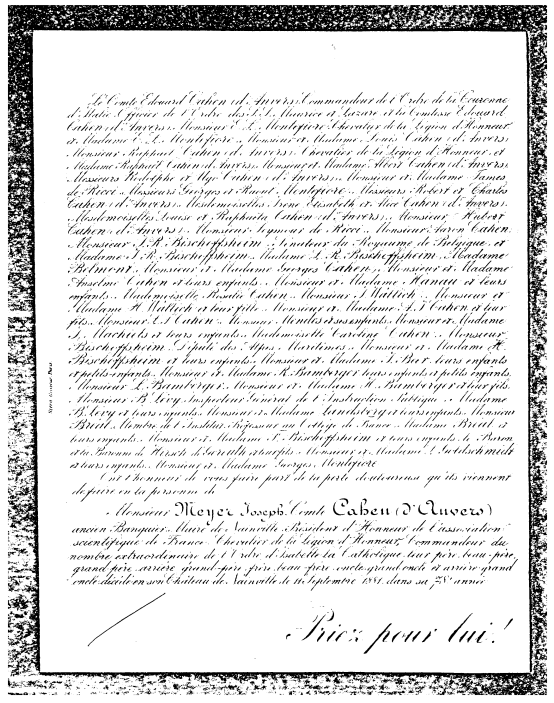 Le Comte Edouard Cahen (d'Anvers), Commandeur de l'Ordre de la Couronne
d'Italie, Officier de l'Ordre des S.S. Maurice et Lazare et la Comtesse Edouard
Cahen (d'Anvers), Monsieur E. L. Montefiore, Chevalier de la Légion d'Honneur,
et Madame E. L. Montefiore, Monsieur et Madame Louis Cahen (d'Anvers),
Monsieur Raphaël Cahen (d'Anvers), Chevalier de la Légion d'Honneur, et
Madame Raphaël Cahen (d'Anvers), Monsieur et Madame Albert Cahen (d'Anvers),
Messieurs Rodolphe et Cahen (d'Anvers), Monsieur et Madame James
de Ricci, Messieurs Georges et Raoul Montefiore, Messieurs Robert et Charles
Cahen (d'Anvers), Mesdemoiselles Irène Elisabeth et Alice Cahen (d'Anvers),
Mesdemoiselles Louise et Raphaëla Cahen (d'Anvers), Monsieur Hubert
Cahen (d'Anvers), Monsieur Seymour de Ricci, Monsieur Aaron Cahen,
Monsieur J. R. Bischoffsheim, Sénateur du Royaume de Belgique, et
Madame J. R. Bischoffsheim, Madame L. R. Bischoffsheim, Madame
Belmont, Monsieur et Madame Georges Cahen, Monsieur et Madame
Anselme Cahen et leurs enfants, Monsieur et Madame Hanau et leurs
enfants, Mademoiselle Rosalie Cahen, Monsieur J. Wallich, Monsieur et
Madame H. Wallich et leur fille, Monsieur et Madame A. J. Cahen et leur
fils, Monsieur Cahen, Monsieur Mendès et ses enfants, Monsieur et Madame
J. Machiels et leurs enfants, Mademoiselle Caroline Cahen, Monsieur
Bischoffsheim, Député des Alpes Maritimes, Monsieur et Madame H.
Bischoffsheim et leurs enfants, Monsieur et Madame J. Beer, leurs enfants
et petits-enfants, Monsieur et Madame R. Bamberger, leurs enfants et petits-enfants,
Monsieur L. Bamberger, Monsieur et Madame H. Bamberger et leur fils,
Monsieur B. Lévy, Inspecteur Général de l'Instruction Publique, Madame
B. Lévy et leurs enfants, Monsieur et Madame Landsberg et leurs enfants, Monsieur
Bréal, Membre de l'Institut, Professeur au Collège de France, Madame Bréal et
leurs enfants, Monsieur et Madame F. Bischoffsheim et leurs enfants, le Baron
et la Baronne de Hirsch de Gereuth et leur fils, Monsieur et Madame L. Goldschmidt
et leurs enfants, Monsieur et Madame Georges Montefiore
Ont l'honneur de vous faire part de la perte douloureuse qu'ils viennent
de faire en la personne de
Monsieur Meyer Joseph, Comte Cahen (d'Anvers)
ancien Banquier, Maire de Nainville, Président d'Honneur de l'association
scientifique de France, Chevalier de la Légion d'Honneur, Commandeur du
nombre extraordinaire de l'Ordre d'Isabelle la Catholique, leur père, beau-père,
grand père, arrière grand-père, frère, beau-frère, oncle, grand oncle et arrière grand
oncle, décédé en son Château de Nainville le 11 Septembre 1881, dans sa année
Priez pour lui!